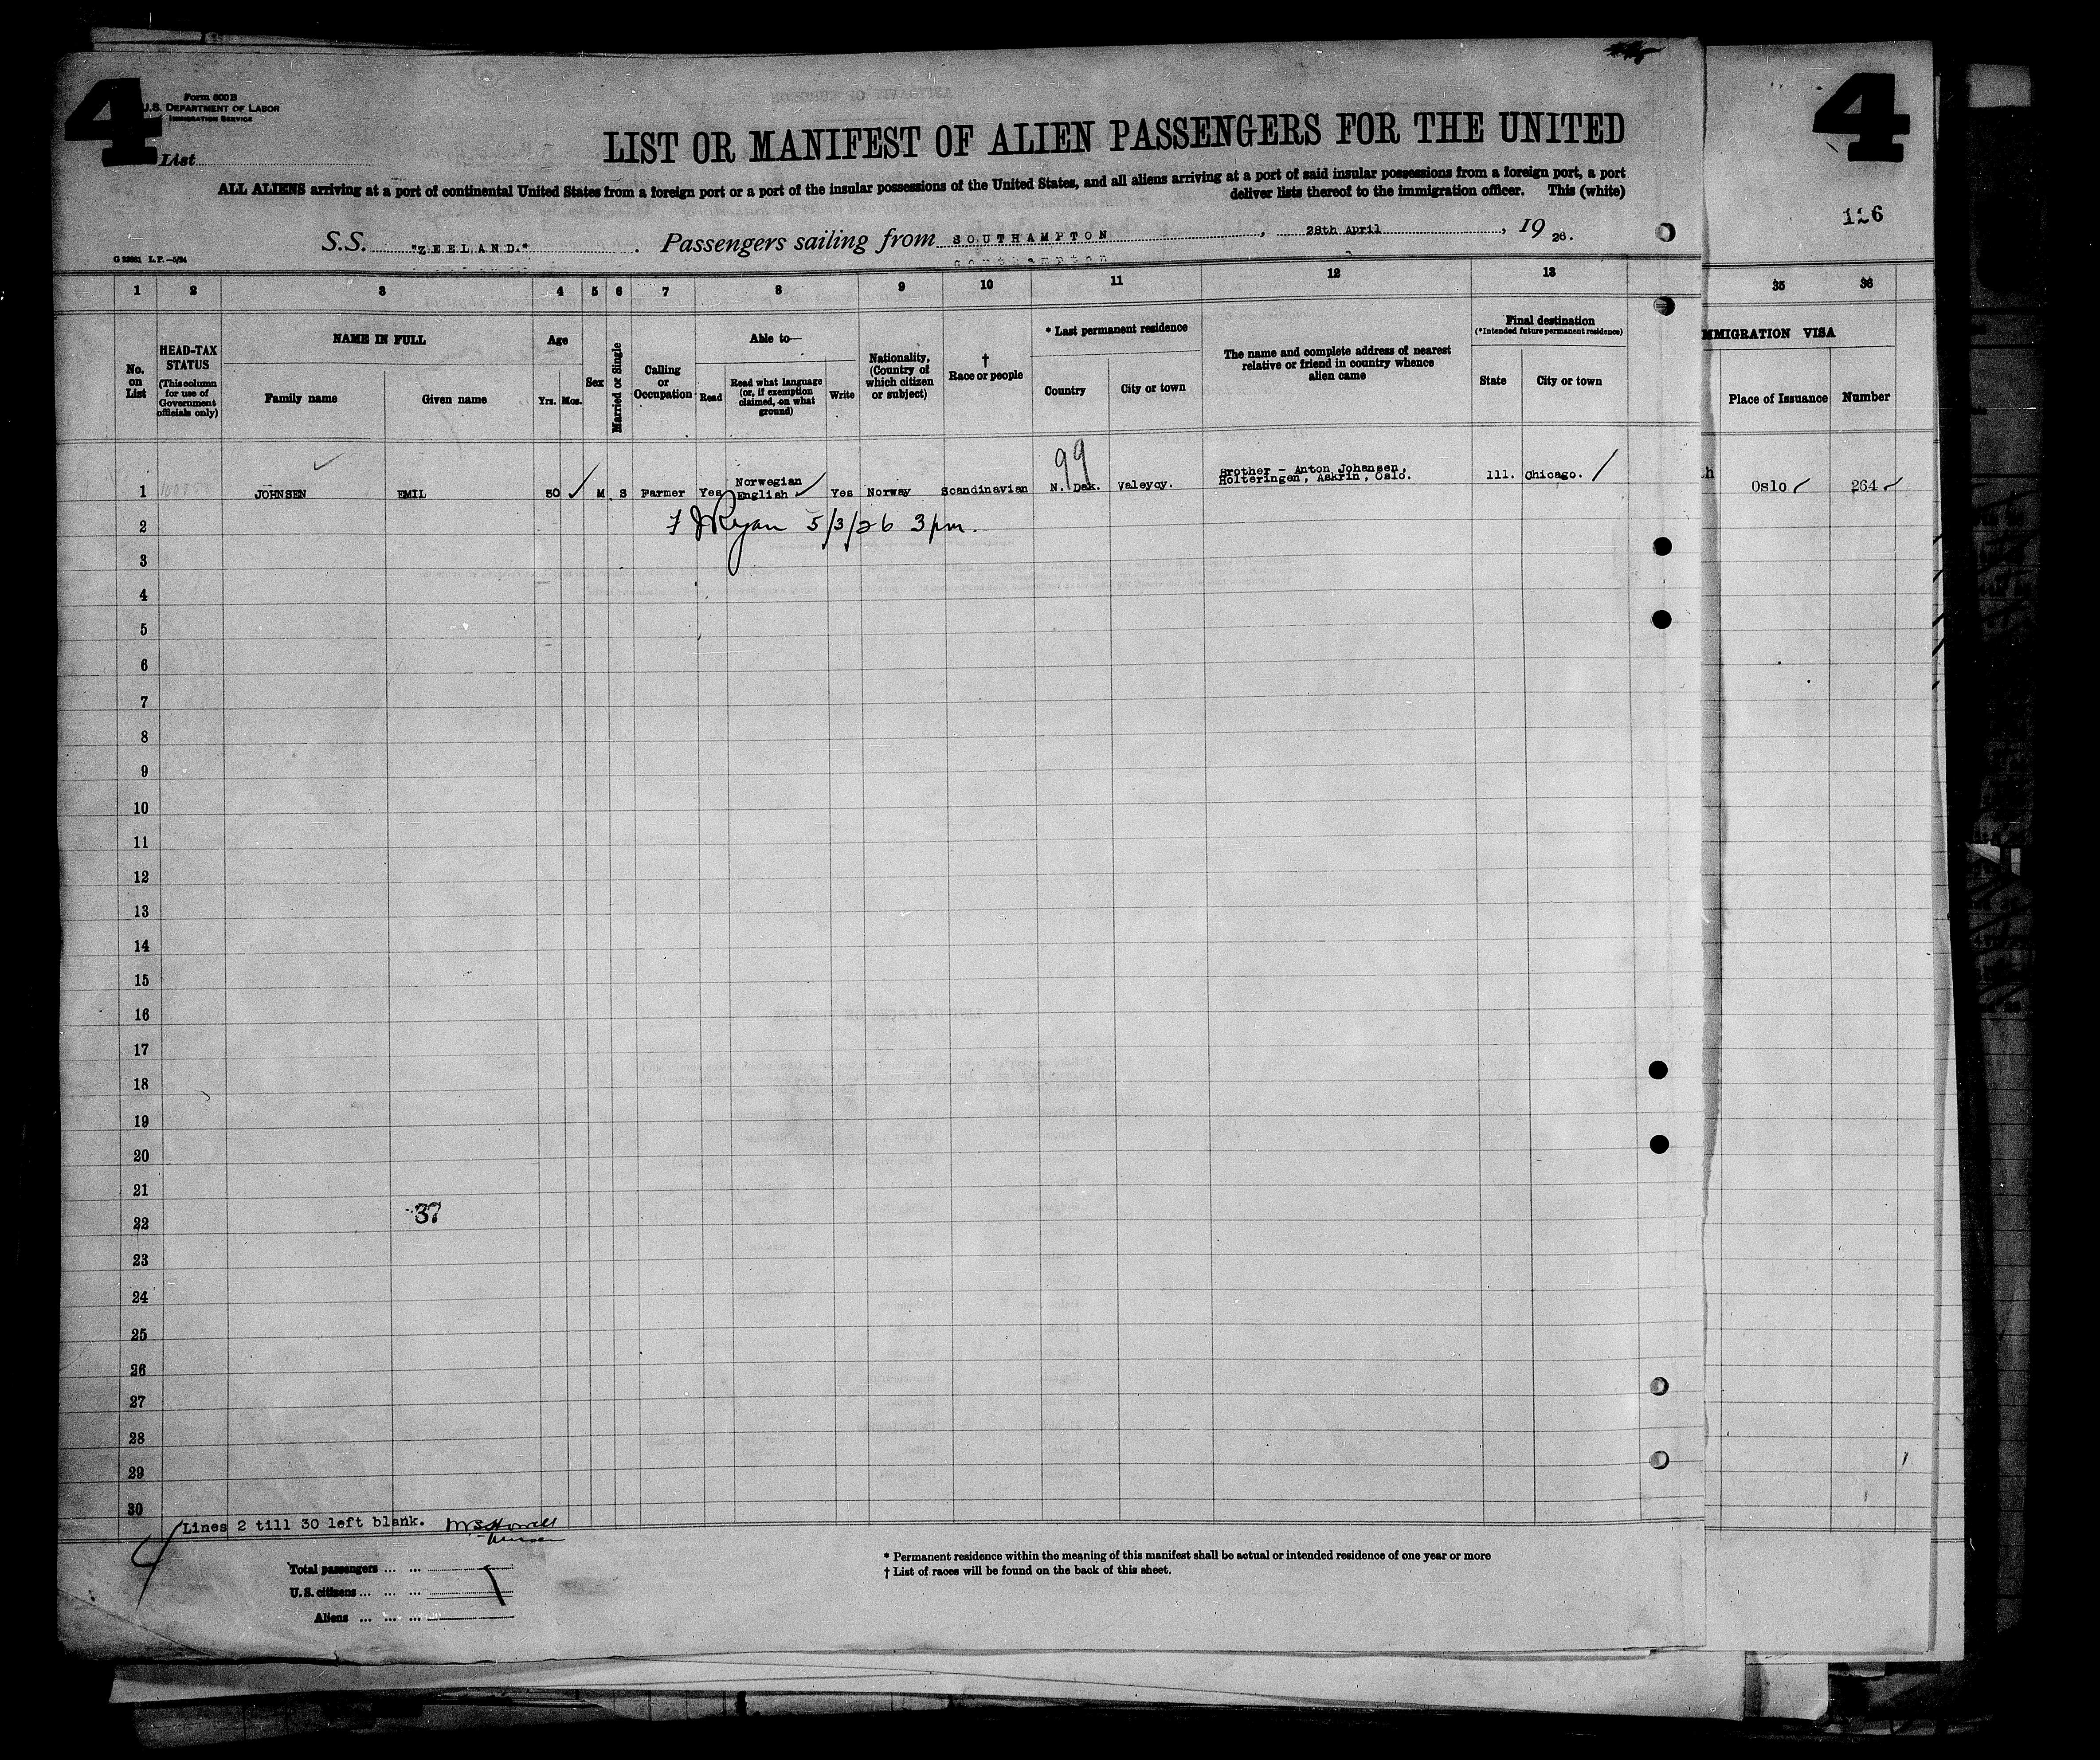 4
4
Form 500 B
U.S. DEPARTMENT OF LABOR
IMMIGRATION SERVICE
List
LIST OR MANIFEST OF ALIEN PASSENGERS FOR THE UNITED
ALL ALIENS arriving at a port of continental United States from a foreign port or a port of the insular possessions of the United States, and all aliens arriving at a port of said insular possessions from a foreign port, a port
deliver lists thereof to the immigration officer. This (white)
126
S.S. "ZEELAND." . Passengers sailing from SOUTHAMPTON , 28th April , 19 26.
1 2 3 4 5 6 7 8 9 10 11 12 13 35 36
No. on List
HEAD-TAX STATUS (This column for use of Government officials only)
NAME IN FULL
Family name Given name
Age
Yrs. Mos.
Sex
Married or Single
Calling or Occupation
Able to—
Read
Read what language (or, if exemption claimed, on what ground)
Write
Nationality, (Country of which citizen or subject)
† Race or people
* Last permanent residence
Country City or town
The name and complete address of nearest relative or friend in country whence alien came
Final destination
(*Intended future permanent residence)
State City or town
MMIGRATION VISA
Place of Issuance Number
99
1 JOHNSEN EMIL 50 M S Farmer Yes Norwegian English Yes Norway Scandinavian N. Dak. Valeycy. Brother - Anton Johansen, Holteringen, Askrin, Oslo. Ill. Chicago. Oslo 264
2 F J Ryan 5/3/26 3 pm.
3
4
5
6
7
8
9
10
11
12
13
14
15
16
17
18
19
20
21
22 37
23
24
25
26
27
28
29
30
Lines 2 till 30 left blank.
Total passengers ... ...
U. S. citizens ... ... ...
Aliens ... ... ...
* Permanent residence within the meaning of this manifest shall be actual or intended residence of one year or more
† List of races will be found on the back of this sheet.